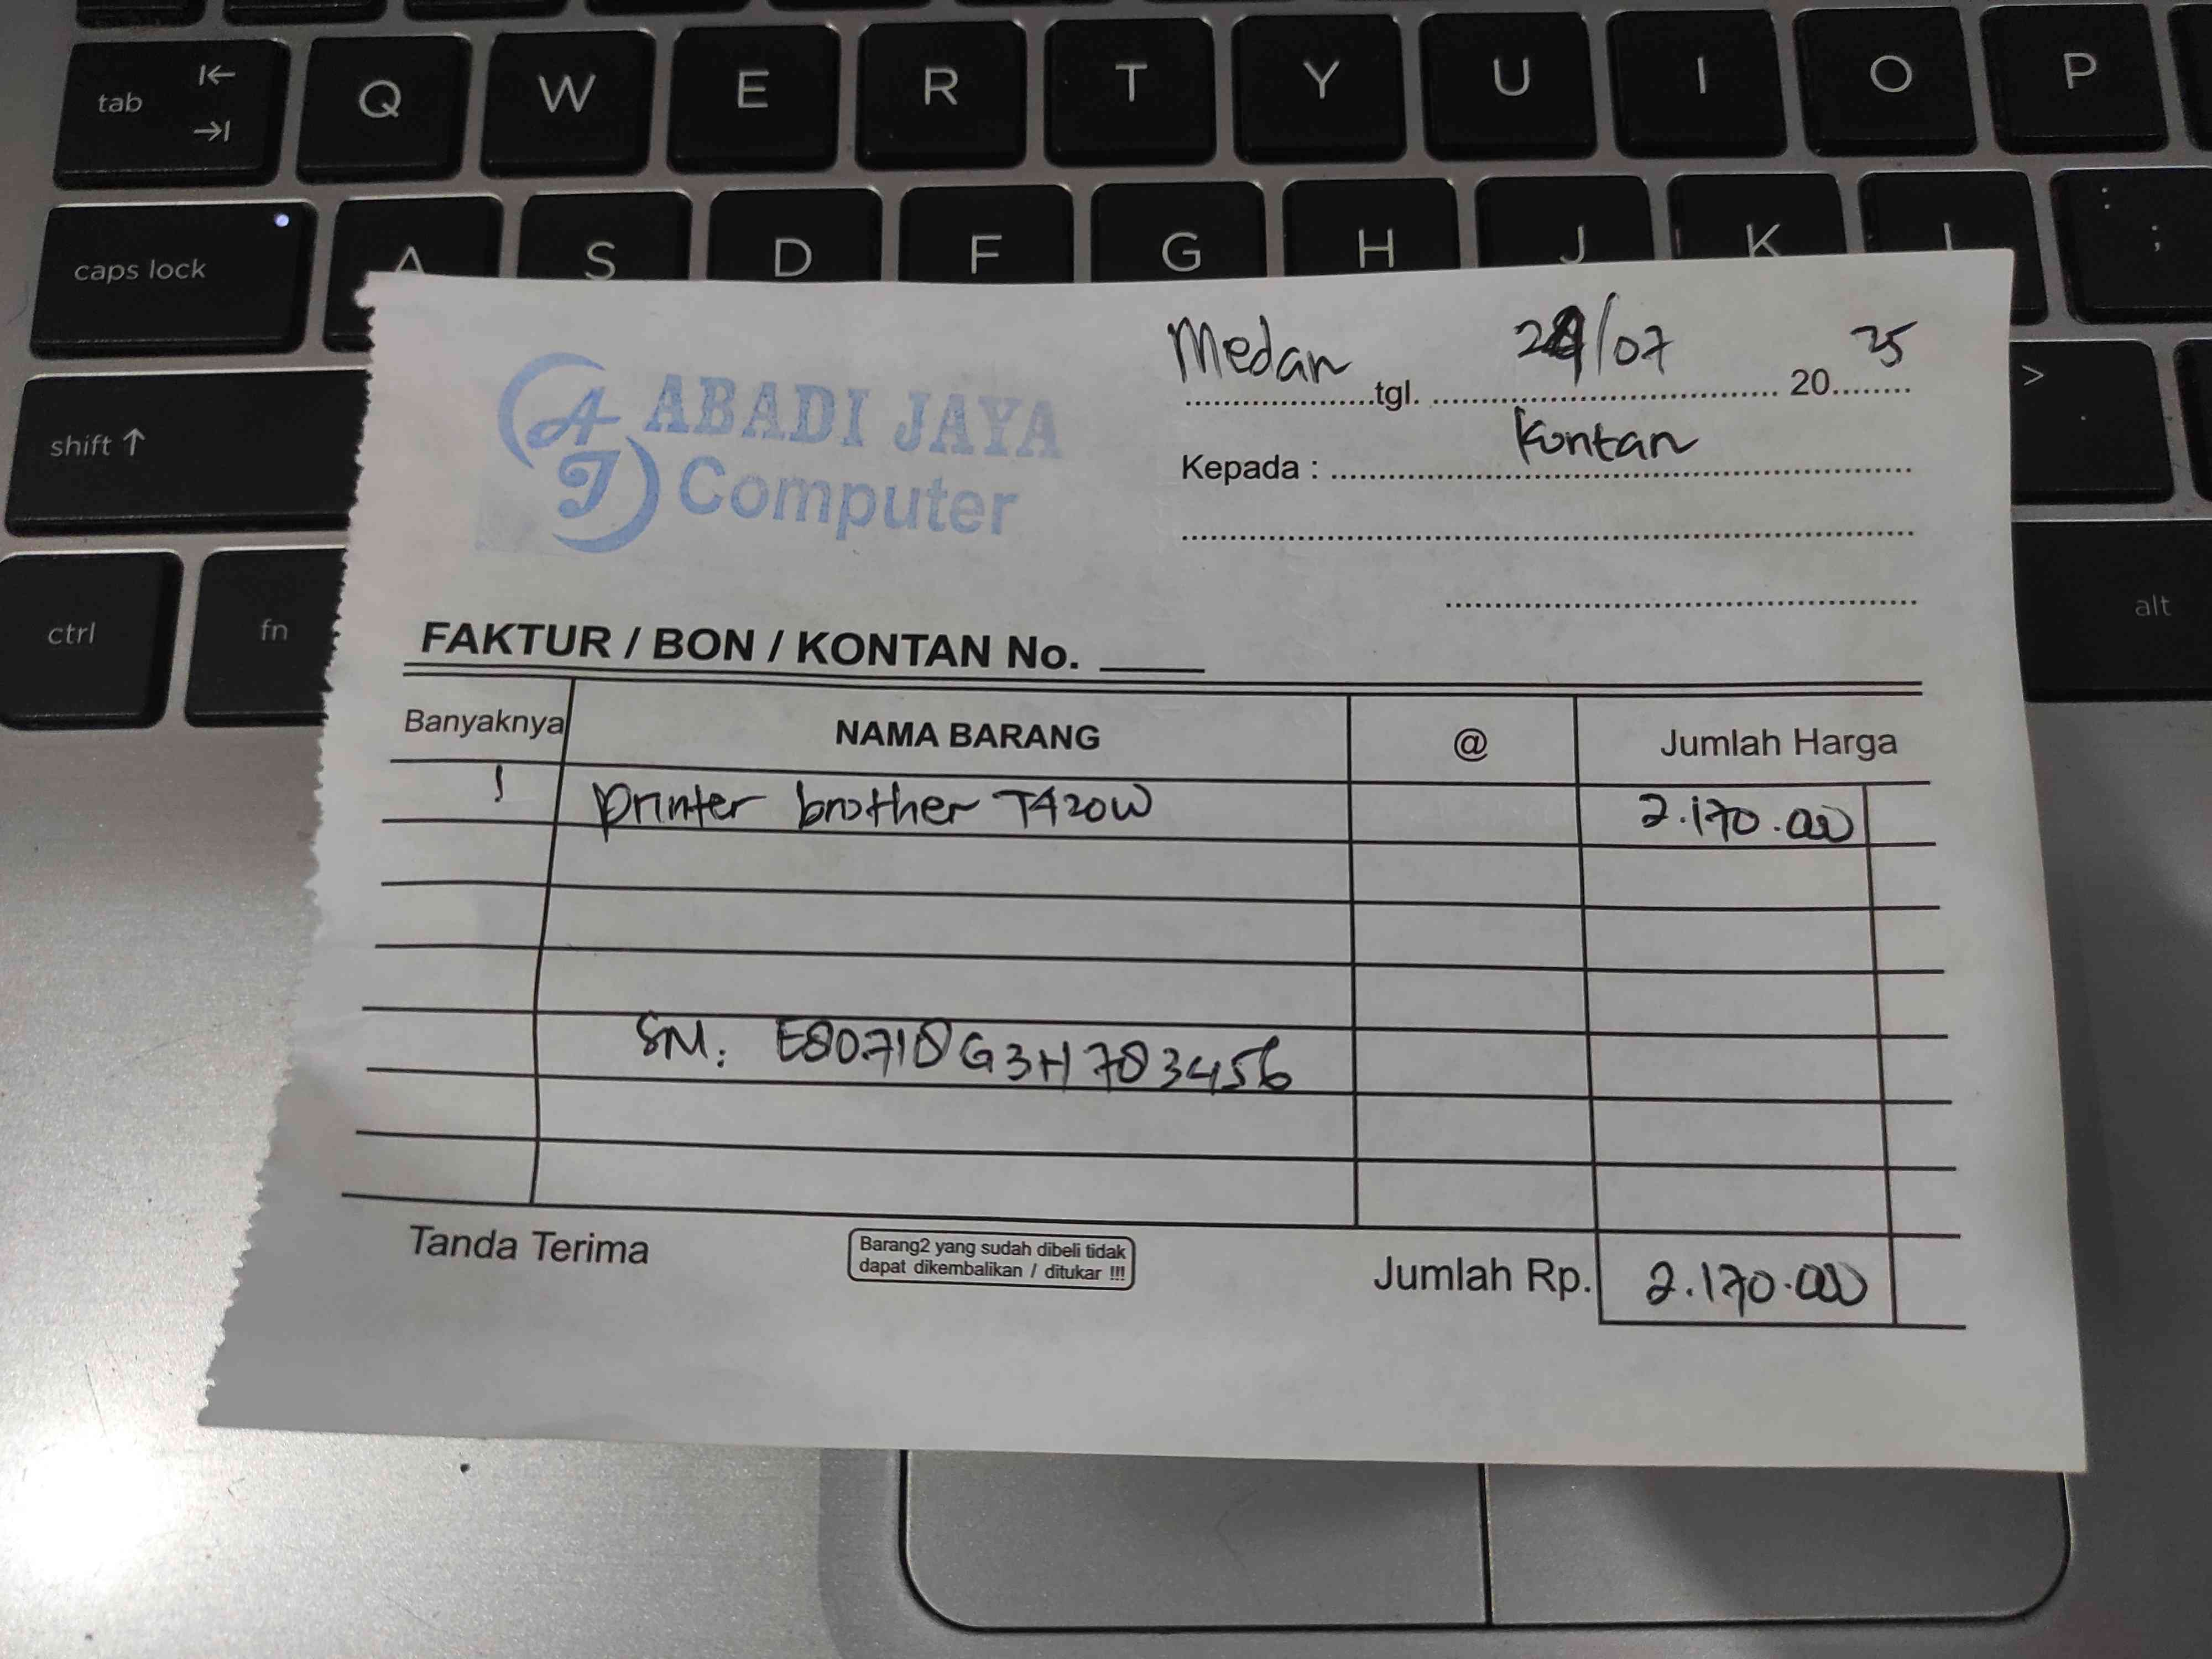 tab
Q W E R T Y U I O P
caps lock
A S D F G H J K L : ;
shift
> .
ctrl
fn
alt
AJ
ABADI JAYA
Computer
Medan tgl. /07 2025
Kepada : Kontan
FAKTUR / BON / KONTAN No.
Banyaknya NAMA BARANG @ Jumlah Harga
1 printer brother T420W 2.170.000
SN: E80718G3H783456
Tanda Terima
Barang2 yang sudah dibeli tidak
dapat dikembalikan / ditukar !!!
Jumlah Rp. 2.170.000